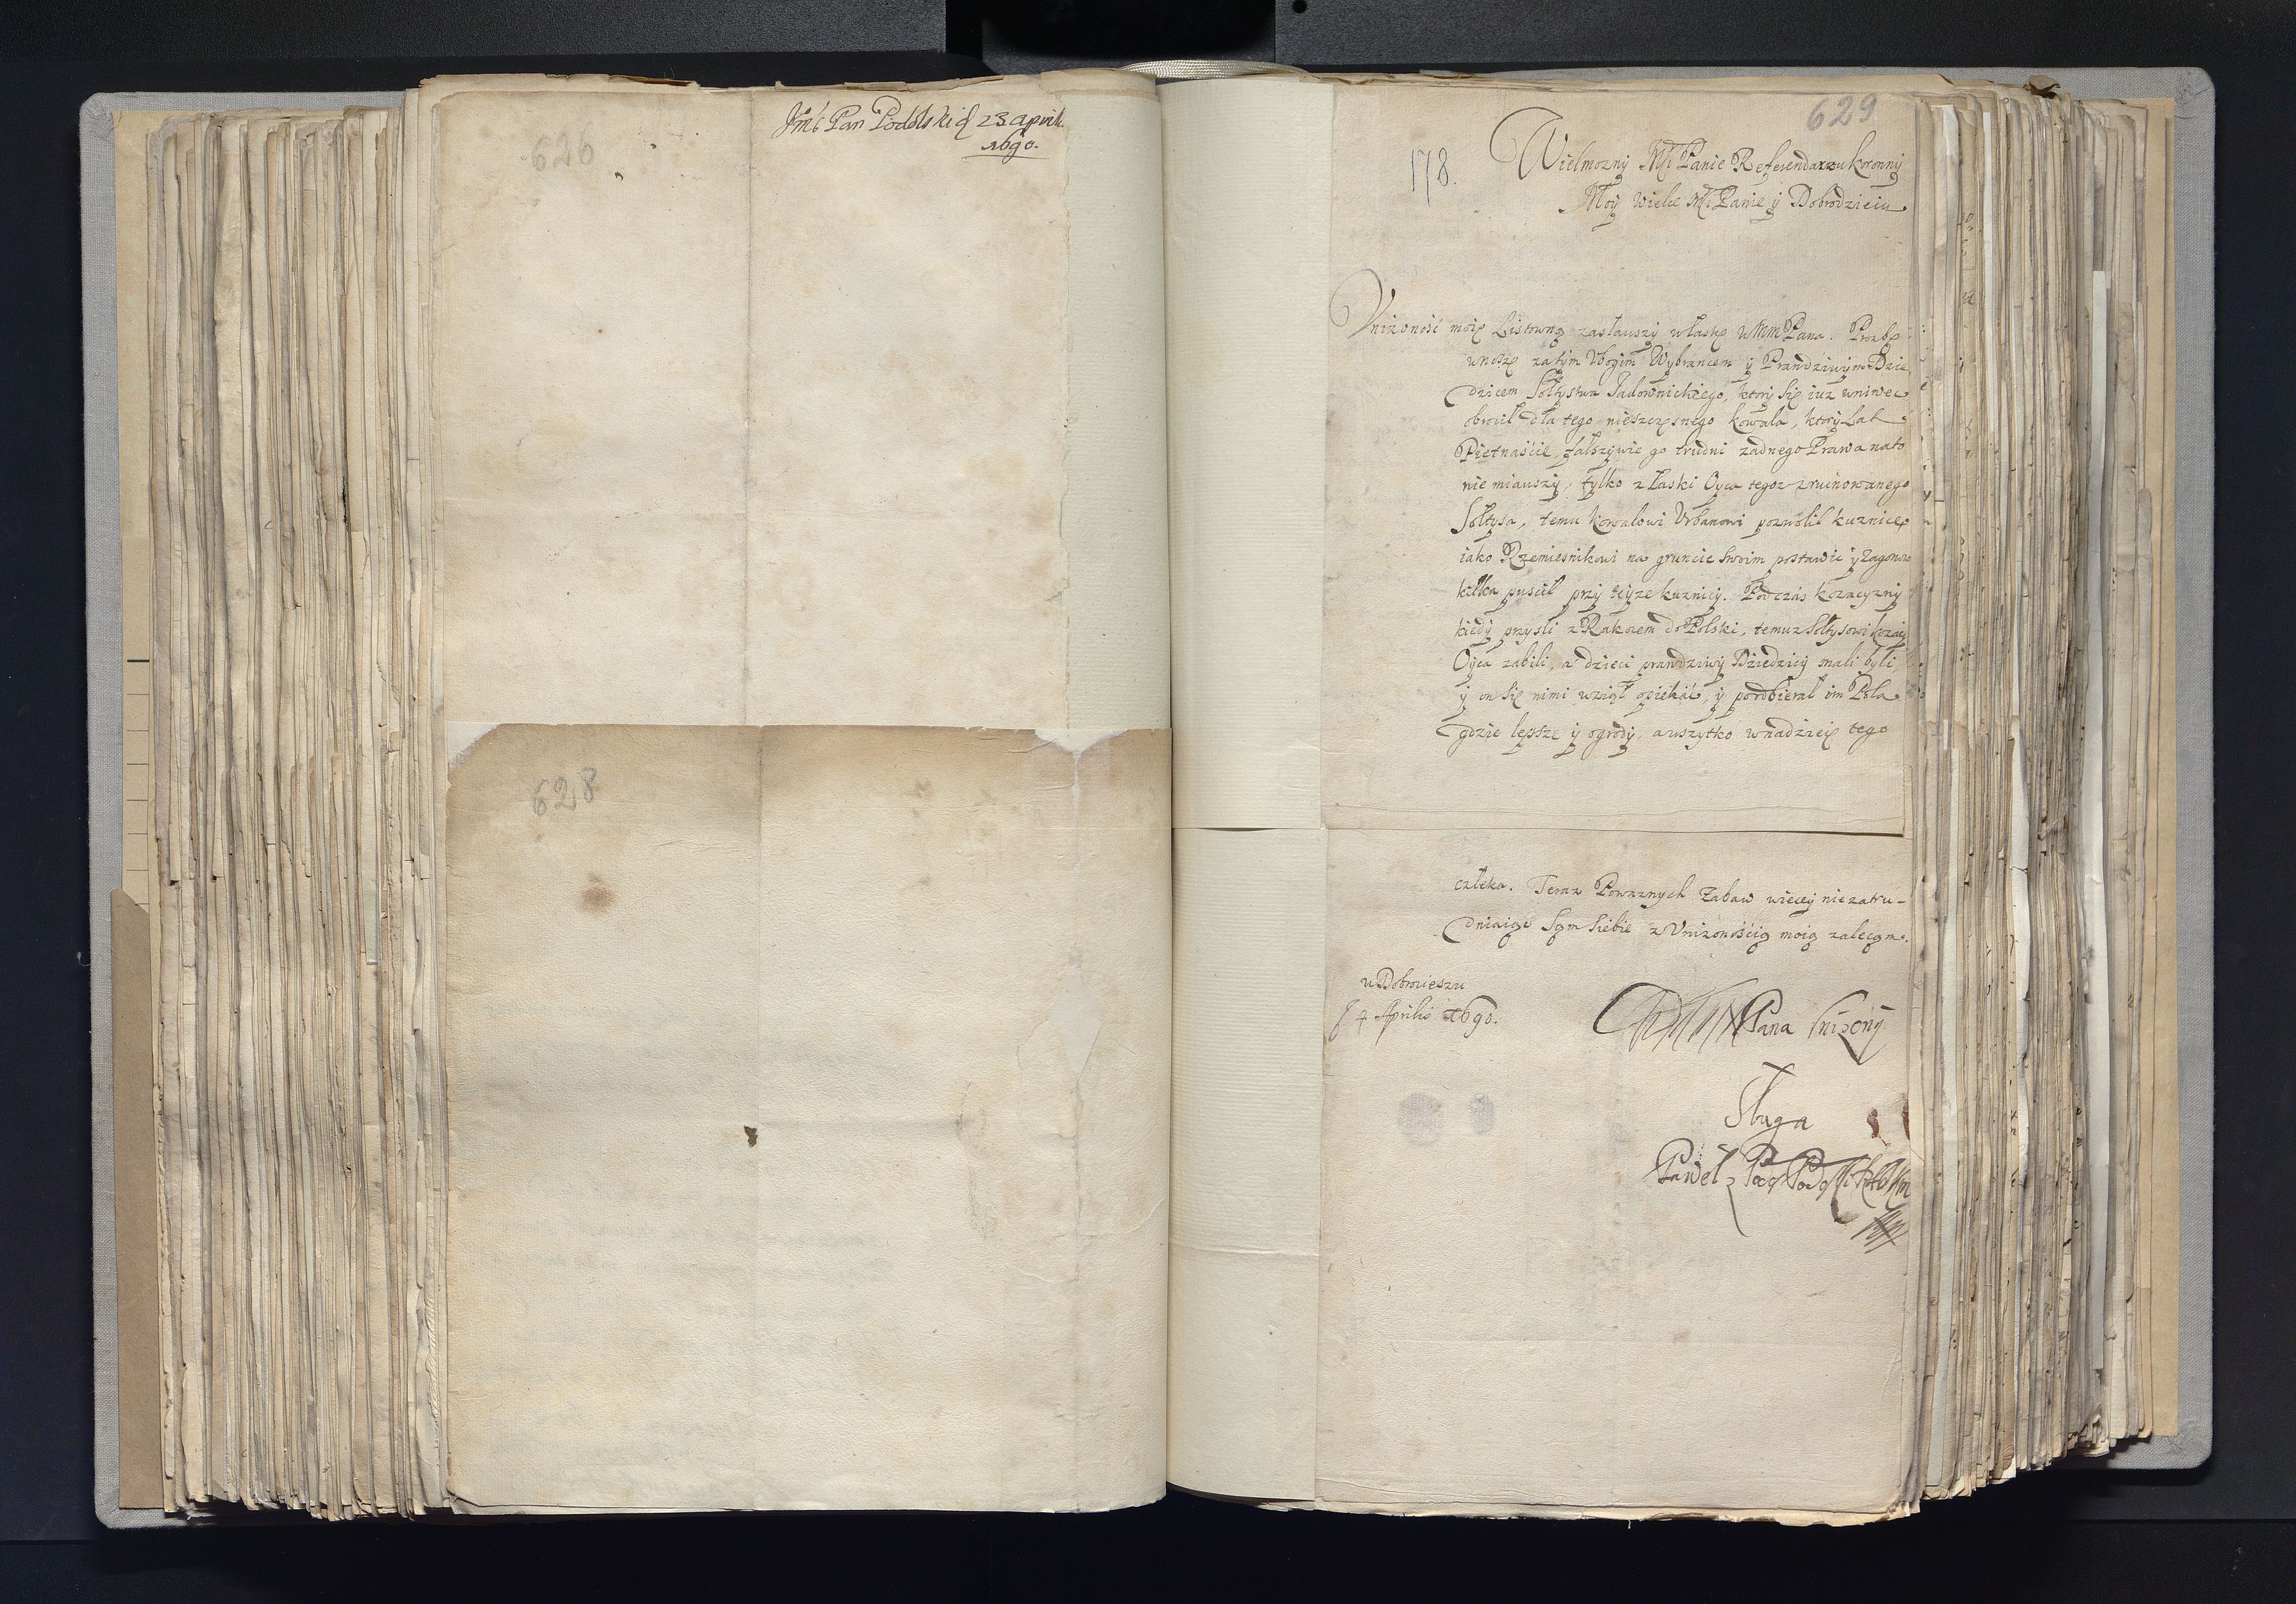 626
Jmć Pan Podolski d 23 april
1690.
628
629
178.
Wielmozny Mći Panie Referendarzu Koronny
Moy wielce Mći Panie y Dobrodzieiu
Vnizoność moię Listowną zasławszy właskę WMM Pana. Prozbę
wnoszę zatym Vbogim Wybrancem y Prawdziwym Dzie
dzicem Sołtystwa Sadownickiego, ktory się iuz wniwec
obrocił dla tego nieszczęsnego kowala, ktory Lat
Pietnaście fałszywie go trudni zadnego Prawa nato
nie miawszy, tylko złaski Oyca tegoz zruinowanego
Sołtysa, temu Kowalowi Vrbanowi pozwolił kuznicę
iako Rzemiesnikowi na gruncie swoim postawić y Zagonow
kilka puscił przy teyze kuznicy. Podczas kozaczyzny
kiedy przysli z Rakocem do Polski, temuz Sołtysowi kozacy
Oyca zabili, a dzieci prawdziwy Dziedzicy mali byli
y on się nimi wziął opiekać, y poodbierał im Pola
gdzie lepsze y ogrody, awszytko wnadzieię tego
człeka. Teraz Powaznych Zabaw więcey nie zatru-
dniaiąc Sam siebie z Vnizonością moią zalecam.
w Dobrocieszu
d 4 Aprilis 1690.
Pana Vnizony
Sługa
Paweł z